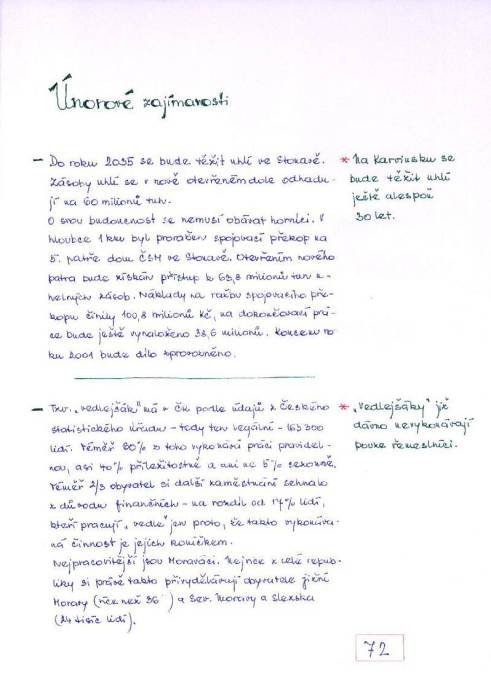 Únorové zajímavosti
– Do roku 2035 se bude těžit uhlí ve Stonavě.
Zásoby uhlí se v nově otevřeném dole odhadu-
jí na 60 milionů tun.
O svou budoucnost se nemusí obávat horníci. V
hloubce 1 km byl proražen spojovací překop na
5. patře dolu ČSM ve Stonavě. Otevřením nového
patra bude získán přístup k 63,8 milionů tun u-
helných zásob. Náklady na ražbu spojovacího pře-
kopu činily 100,8 milionů Kč, na dokončovací prá-
ce bude ještě vynaloženo 38,6 milionů. Koncem ro-
ku 2001 bude dílo zprovozněno.
* Na Karvinsku se
bude těžit uhlí
ještě alespoň
30 let.
– Tzv. „vedlejšák" má v ČR podle údajů z Českého
statistického úřadu – tedy ten legální – 163 300
lidí. Téměř 60% z toho vykonává práci pravidel-
nou, asi 40% příležitostně a ani ne 5% sezonně.
Téměř 2/3 obyvatel si další zaměstnání sehnalo
z důvodu finančních – na rozdíl od 17% lidí,
kteří pracují „vedle" jen proto, že takto vykonáva-
ná činnost je jejich koníčkem.
Nejpracovitější jsou Moraváci. Nejvíce z celé repub-
liky si právě takto přivydělávají obyvatelé jižní
Moravy (více než 36 ) a Sev. Moravy a Slezska
(24 tisíc lidí).
* „Vedlejšáky" již
dávno nevykonávají
pouze řemeslníci.
72